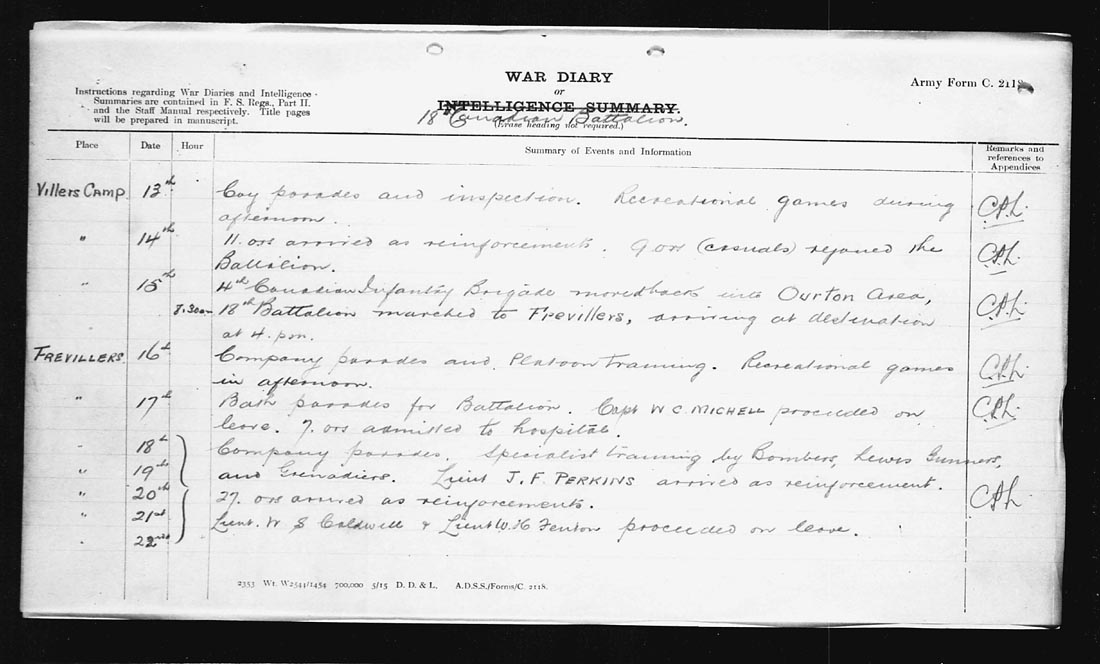 WAR DIARY
or
INTELLIGENCE SUMMARY.
(Erase heading not required.)
18th Canadian Battalion.
Army Form C. 2118
Instructions regarding War Diaries and Intelligence
Summaries are contained in F. S. Regs., Part II.
and the Staff Manual respectively. Title pages
will be prepared in manuscript.
Place Date Hour Summary of Events and Information Remarks and
references to
Appendices
Villers Camp. 13th Coy parades and inspection. Recreational games during
afternoon.
" 14th 11. ors arrived as reinforcements. 9 ors (casuals) rejoined the
Battalion.
" 15th 4th Canadian Infantry Brigade moved back into Ourton Area,
18th Battalion marched to Frevillers, arriving at destination
at 4. pm.
FREVILLERS 16th Company parades and Platoon Training. Recreational games
in afternoon.
" 17th Bath parades for Battalion. Capt W C MICHELL proceeded on
leave. 7. ors admitted to hospital.
" 18th Company parades. Specialist training by Bombers, Lewis Gunners,
" 19th and Grenadiers. Lieut J. F. PERKINS arrived as reinforcement.
" 20th 27. ors arrived as reinforcements.
" 21st Lieut. W S Caldwell & Lieut W. H Fenton proceeded on leave.
" 22nd
2353 Wt. W2544/1454 700,000 5/15 D. D. & L. A.D.S.S./Forms/C. 2118.